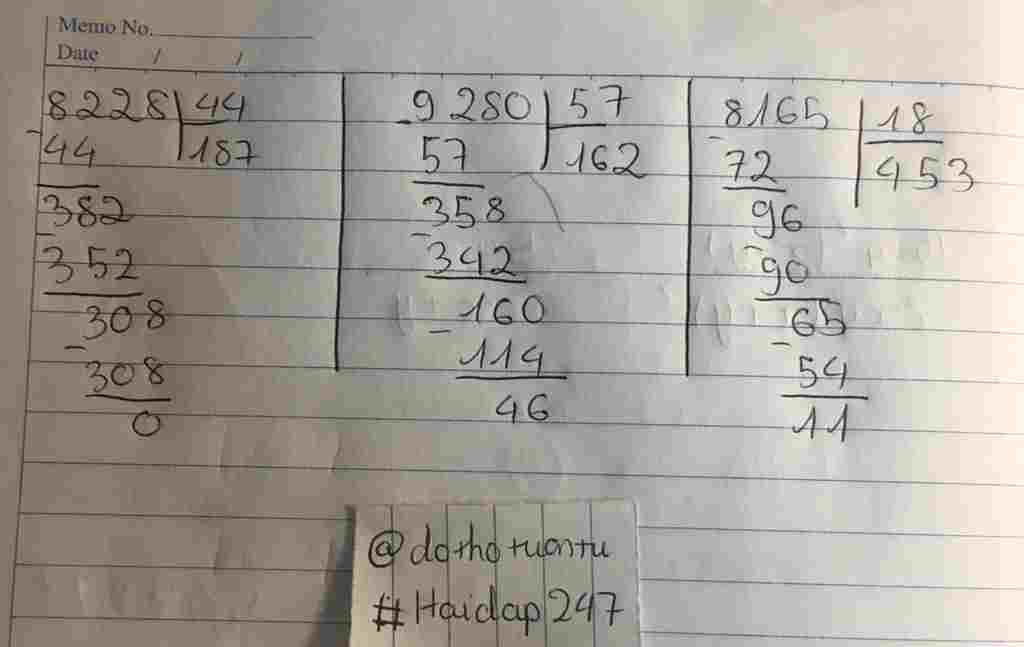 Memo No.
Date / /
8228 44
-44 187
382
-352
308
-308
0
-9280 57
57 162
358
-342
160
-114
46
8165 18
-72 453
96
-90
65
-54
11
@dothotuontu
#Hoidap247